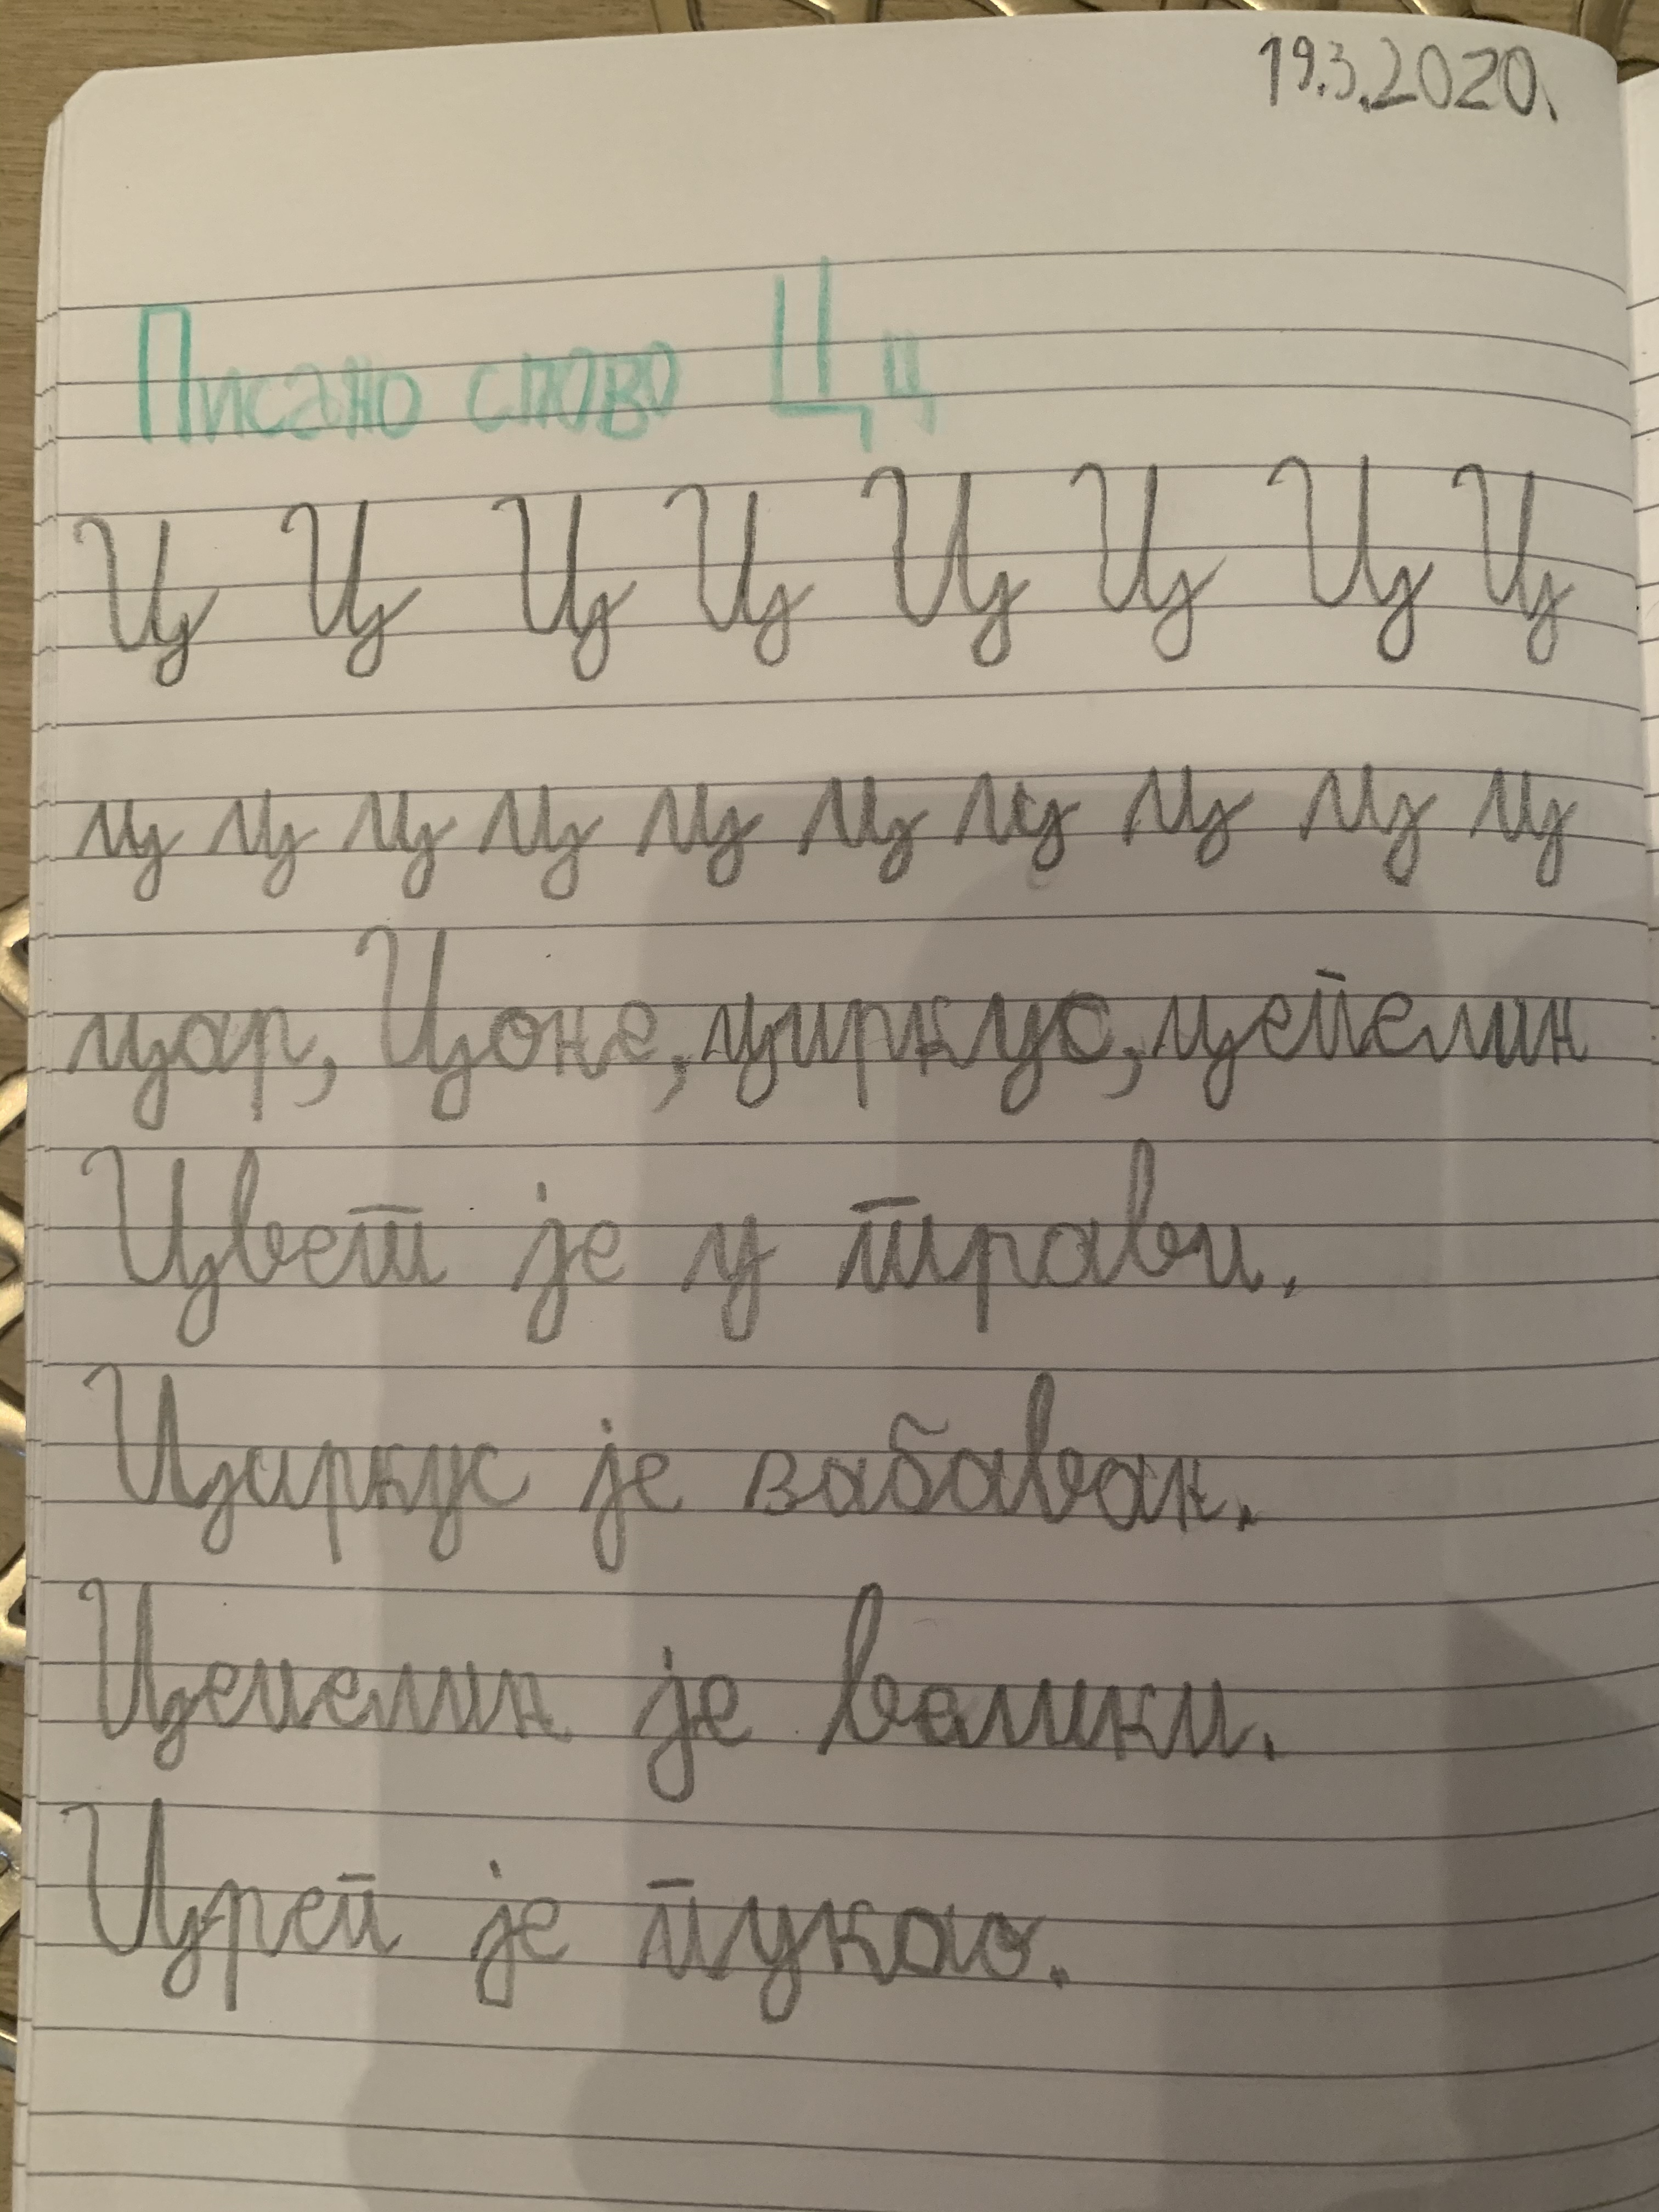 19.3.2020.
Писано слово Ц ц
Ц Ц Ц Ц Ц Ц Ц Ц
ц ц ц ц ц ц ц ц ц ц
цар, Цоне, циркус, цепелин
Цвет је у трави.
Циркус је забаван.
Цепелин је велики.
Цреп је пукао.